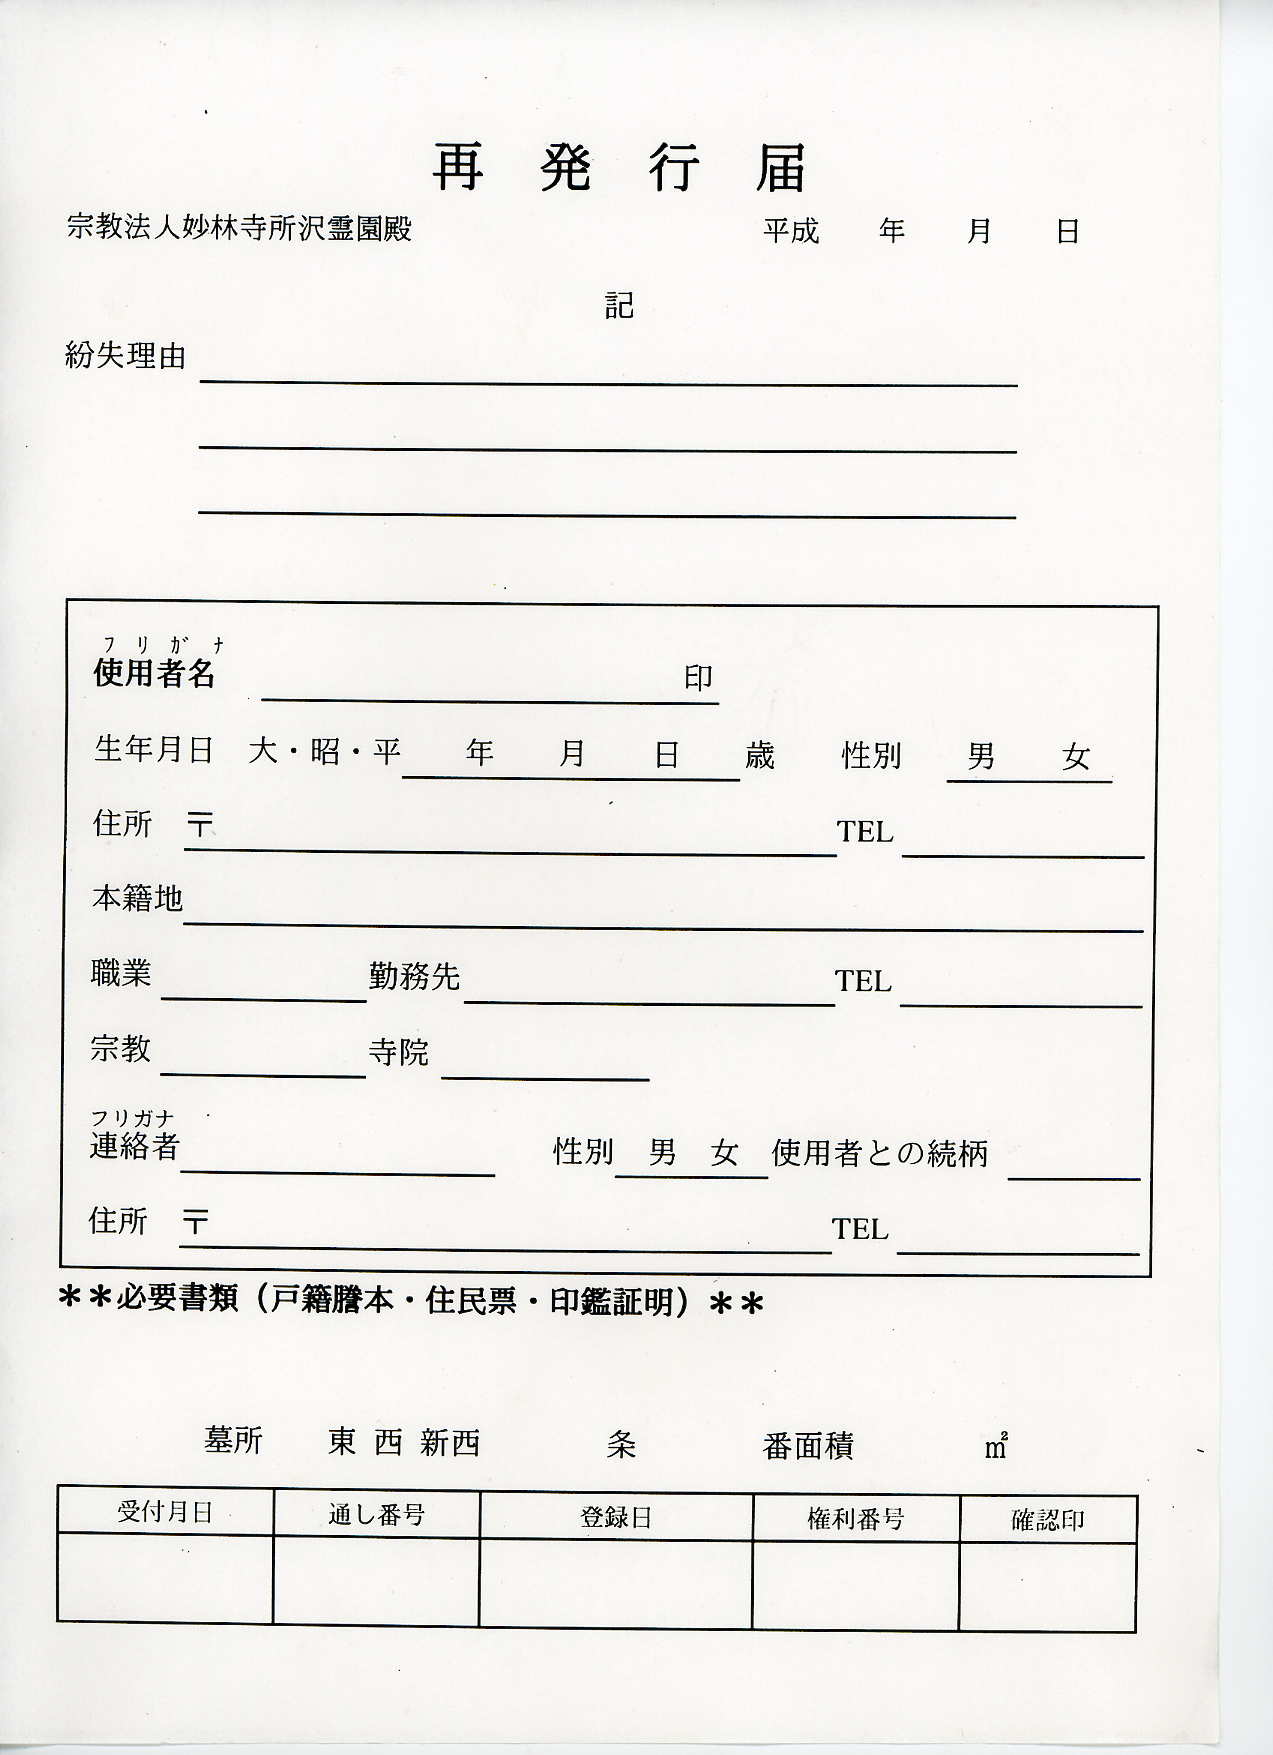 再発行届
宗教法人妙林寺所沢霊園殿 平成 年 月 日
記
紛失理由
フリガナ
使用者名 印
生年月日 大・昭・平 年 月 日 歳 性別 男 女
住所 〒 TEL
本籍地
職業 勤務先 TEL
宗教 寺院
フリガナ
連絡者 性別 男 女 使用者との続柄
住所 〒 TEL
＊＊必要書類（戸籍謄本・住民票・印鑑証明）＊＊
墓所 東 西 新西 条 番面積 ㎡
受付月日 通し番号 登録日 権利番号 確認印